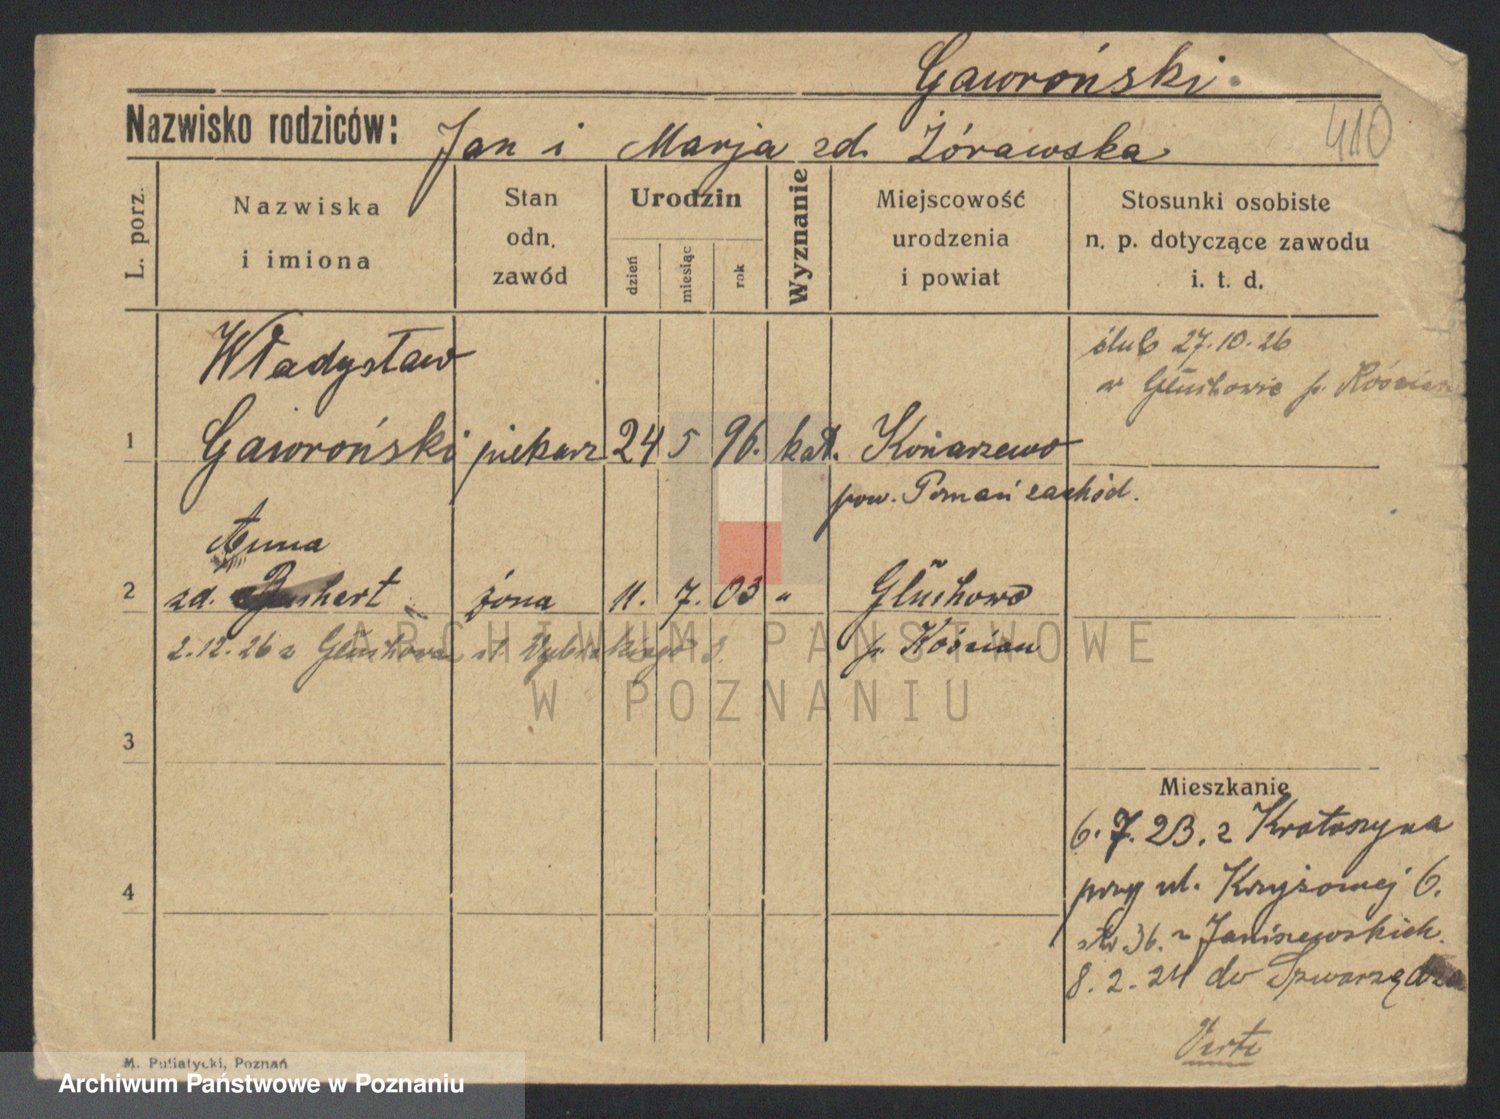 Gawroński.
410
Nazwisko rodziców: Jan i Marja zd. Żórawska
L. porz.
Nazwiska i imiona
Stan odn. zawód
Urodzin
dzień
miesiąc
rok
Wyznanie
Miejscowość urodzenia i powiat
Stosunki osobiste n. p. dotyczące zawodu i. t. d.
Władysław
ślub 27.10.26
w Głuchowie p. Kościan
1 Gawroński piekarz 24 5 96. kat. Konarzewo
pow. Poznań zachód.
Anna
2 zd. żona 11. 7. 03 " Głuchowo
2.12.26 z Głuchowa
p. Kościan
ARCHIWUM PAŃSTWOWE
W POZNANIU
3
Mieszkanie
6. 7. 23. z Krotoszyna
4 przy ul. Krzyżowej 6.
36. Janiszewskich.
8. 2. 24 do Szwarzędza
Verte
M. Putiatycki, Poznań
Archiwum Państwowe w Poznaniu